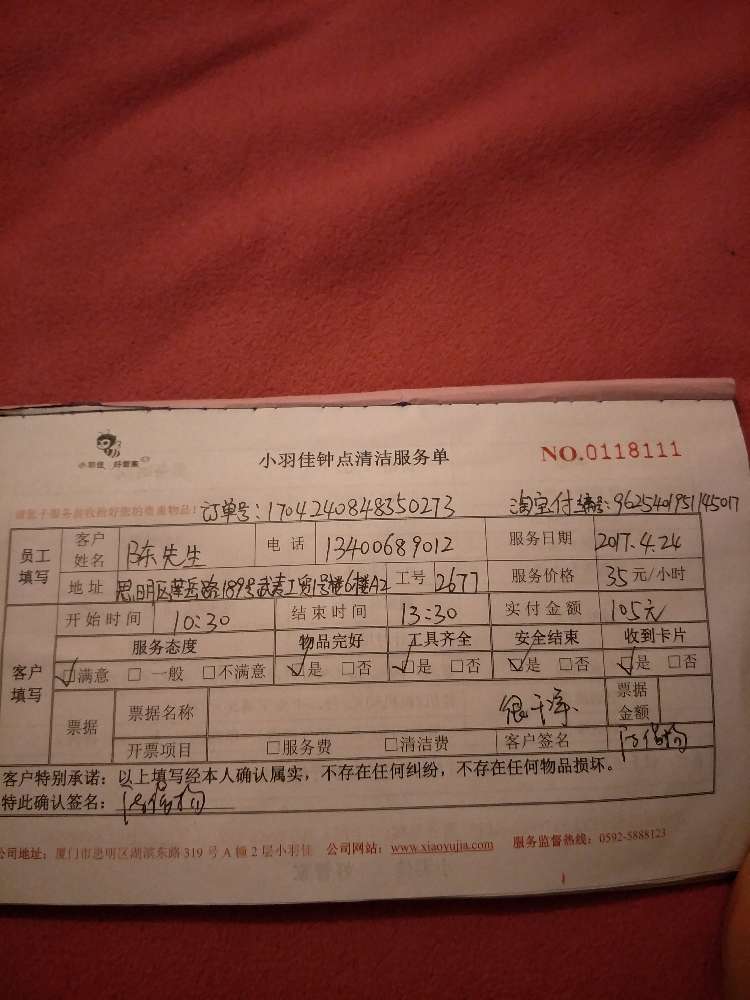 小羽佳 好管家
小羽佳钟点清洁服务单
NO.0118111
订单号:1704240848350273 淘宝付 编号:9625401951145017
员工填写 客户姓名 陈先生 电话 13400689012 服务日期 2017.4.24
地址 思明区莲岳路189号 工贸1号楼6楼A2 工号 2677 服务价格 35元/小时
客户填写 开始时间 10:30 结束时间 13:30 实付金额 105元
服务态度 物品完好 工具齐全 安全结束 收到卡片
☑满意 □ 一般 □不满意 ☑是 □否 ☑是 □否 ☑是 □否 ☑是 □否
票据 票据名称 很干净. 票据金额
开票项目 □服务费 □清洁费 客户签名
客户特别承诺:以上填写经本人确认属实,不存在任何纠纷,不存在任何物品损坏。
特此确认签名:
公司地址:厦门市思明区湖滨东路319号A幢2层小羽佳 公司网站:www.xiaoyujia.com 服务监督热线:0592-5888123